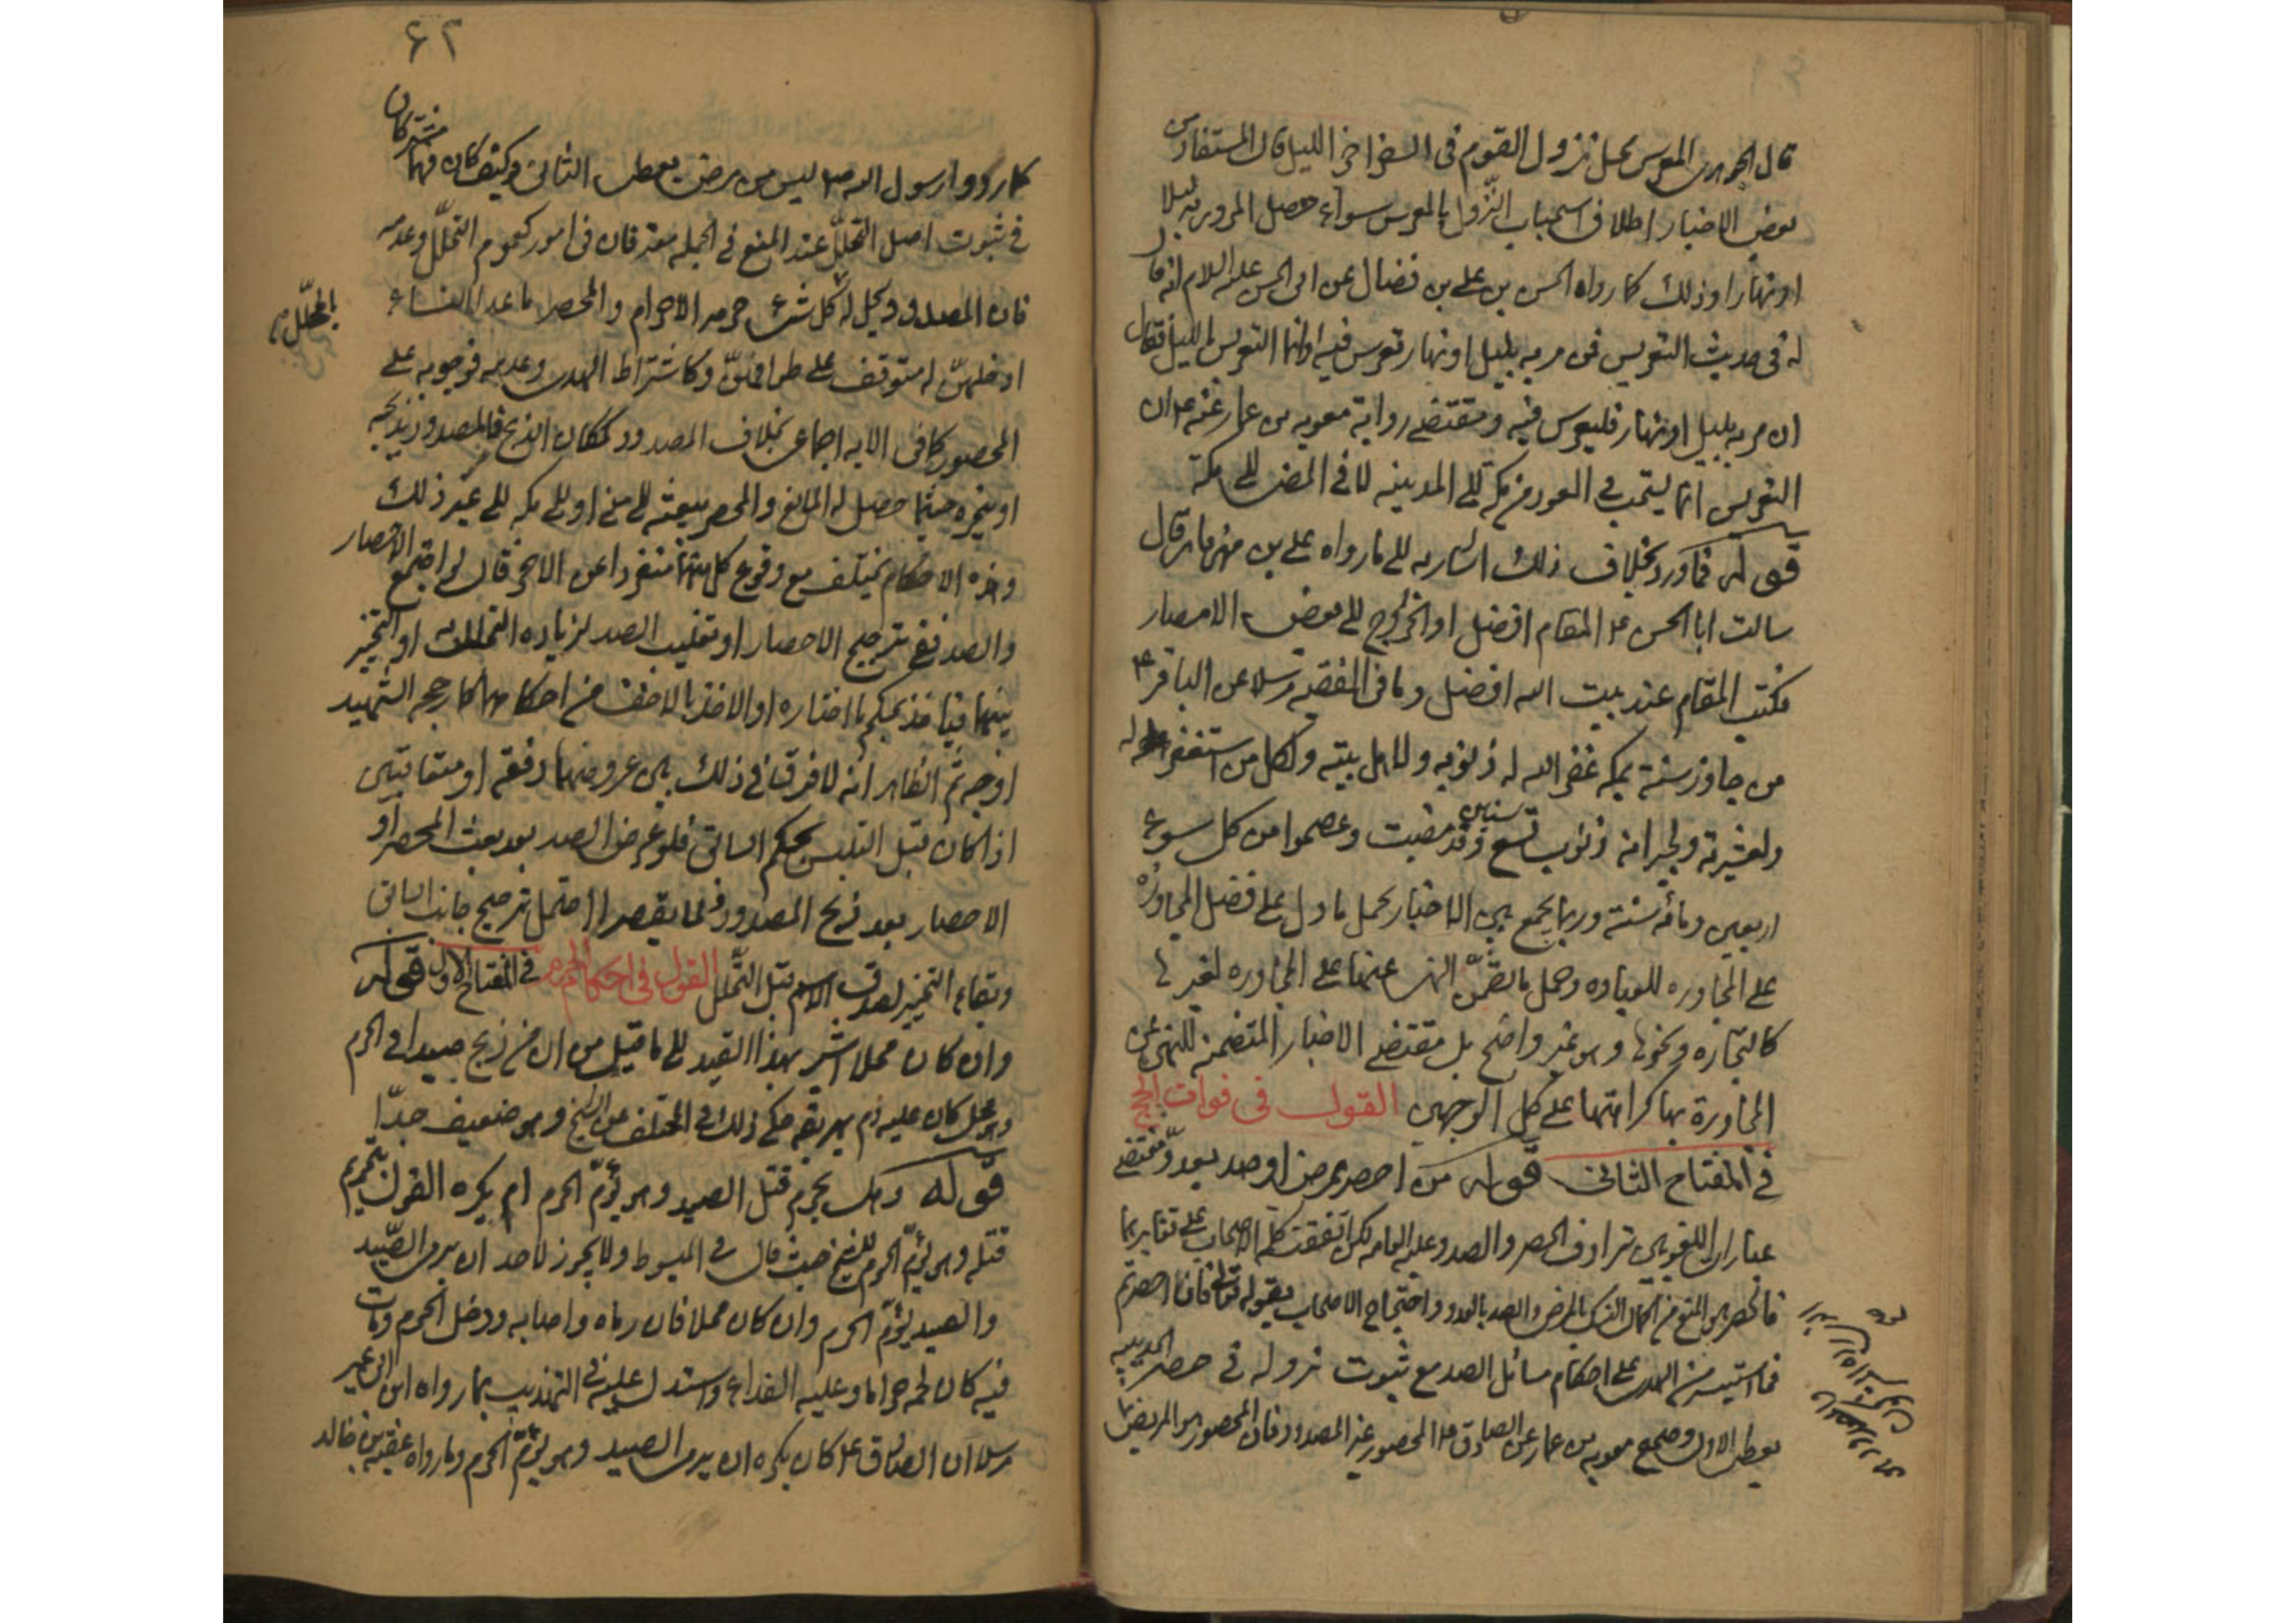 قال الجوهري المعرس محل نزول القوم في السفر اخر الليل قال المستفاد من
بعض الاخبار اطلاق استحباب النزول بالمعرس سواء حصل المرور به ليلا
او نهارا وذلك كما رواه الحسن بن علي بن فضال عن ابي الحسن عليه السلام انه قال
له في حديث التعريس فمن مر به بليل او نهار تعرس فيه او انما التعريس بالليل فقال
ان مر به بليل او نهار فليعرس فيه ومقتضى رواية معويه بن عمار عنه ع ان
التعريس انما يستحب في العود من مكة الى المدينه لا في المضى الى مكة
قوله فما ورد بخلاف ذلك اشار به الى ما رواه علي بن مهزيار قال
سالت ابا الحسن ع المقام افضل او الخروج الى بعض الامصار
فكتب المقام عند بيت الله افضل وما في الفقيه مرسلا عن الباقر ع
من جاور سنة بمكه غفر الله له ذنوبه ولاهل بيته ولكل من استغفر له
ولعشيرته ولجيرانه ذنوب تسع سنين وقد مضت وعصموا من كل سوء
اربعين ومائة سنة وربما يجمع بين الاخبار بحمل ما دل على فضل المجاورة
على المجاوره للعباده وحمل ما تضمن النهي عنها على المجاوره لغيرها
كالتجاره ونحوها وهو غير واضح بل مقتضى الاخبار المتضمنه للنهي عن
المجاورة بها كراهتها على كل الوجهين القول في فوات الحج
في المفتاح الثاني قوله من احصر بمرض او صد بعدو مقتضى
عبارات اللغويين ترادف الحصر والصد وعليه العامه لكن اتفقت كلمة الاصحاب على تغايرهما
فالحصر هو المنع من اكمال النسك بالمرض والصد بالعدو واحتجاج الاصحاب بقوله تعالى فان احصرتم
فما استيسر من الهدي على احكام مسائل الصد مع ثبوت نزوله في حصر الحديبيه
يعطى الاول وصحيح معويه بن عمار عن الصادق ع المحصور غير المصدود فان المحصور هو المريض
٦٢
كما ردوا رسول الله ص ليس من مرض يعطى الثاني وكيف كان فهما مشتركان
في ثبوت اصل التحلل عند المنع في الجمله مفترقان في امور كعموم التحلل وعدمه
فان المصدود يحل له كل شيء حرمه الاحرام والمحصر ما عدا النساء
بالمحلل
او حلهن له متوقف على طوافهن وكاشتراط الهدي وعدمه فوجوبه على
المحصور كما في الايه اجماعي بخلاف المصدود كمكان الذبح فالمصدود يذبحه
او ينحره حيثما حصل له المانع والمحصر يبعثه الى منى او الى مكه الى غير ذلك
وهذه الاحكام تختلف مع وقوع كل منهما منفردا عن الاخر فان لو اجتمع الاحصار
والصد ففي ترجيح الاحصار او تغليب الصد لزياده التحلل به او التخيير
بينهما فياخذ بحكم ما اختاره او الاخذ بالاخف من احكامهما كما رجحه الشهيد
اوجه ثم الظاهر انه لا فرق في ذلك بين عروضهما دفعه او متعاقبين
اذا كان قبل التلبس بحكم السابق فلو عرض الصد بعد بعث المحصر او
الاحصار بعد ذبح المصدود ولما يقصر احتمل ترجيح جانب السابق
وبقاء التخيير لصدق الاسم قبل التحلل القول في احكام الحرم في المفتاح الاول قوله
وان كان محلا اشير بهذا القيد الى ما قيل من ان من ذبح صيدا في الحرم
وهو محل كان عليه دم يهريقه حكى ذلك في المختلف عن الشيخ وهو ضعيف جدا
قوله وهل يحرم قتل الصيد وهو يؤم الحرم ام يكره القول بتحريم
قتله وهو يؤم الحرم للشيخ حيث قال في المبسوط ولا يجوز لاحد ان يرمي الصيد
والصيد يؤم الحرم وان كان محلا فان رماه واصابه ودخل الحرم ومات
فيه كان لحمه حراما وعليه الفداء واستدل عليه في التهذيب بما رواه ابن ابي عمير
مرسلا ان الصادق ع كان يكره ان يرمى الصيد وهو يؤم الحرم وما رواه عقبه بن خالد